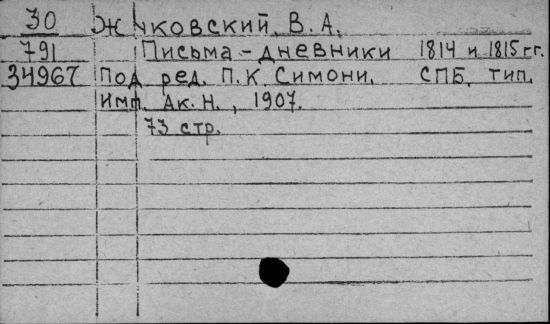 30 Жуковский, В. А.
791 Письма - дневники 1814 и 1815 гг.
34967 Под ред. П. К. Симони. СПБ, тип.
Имп. Ак. Н., 1907.
73 стр.